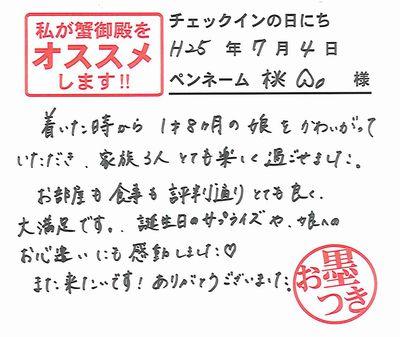 私が蟹御殿を
オススメ
します!!
チェックインの日にち
H25 年 7 月 4 日
ペンネーム 桃 様
着いた時から 1才8ヶ月の娘をかわいがって
いただき、家族3人とても楽しく過ごせました。
お部屋も食事も評判通りとても良く、
大満足です。誕生日のサプライズや、娘への
お心遣いにも感動しました♡
また来たいです!ありがとうございました。
お墨つき